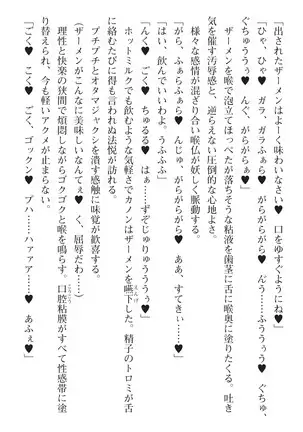 「出されたザーメンはよーく味わいなさい♥　口をゆすぐようにね」
「ひゃ、ひゃ♥　ガラ、ガラふぁら♥　がらがらがら♥　んう……ふううぅう♥　ぐちゅ、
ぐちゅううう♥　んぐ、がらがらぁ♥」
　ザーメンを喉で泡立てほっぺたが落ちそうな粘液を歯茎に舌に喉奥に塗りたくる。吐き
気を催す汚辱感と、逆らえない圧倒的な心地よさ。
　様々な感情が混ざり合い喉仏が妖しく脈動する。
「がら、ふぁらふぁら♥　んじゅ、がらがらがら♥　ああ、すてきぃ……♥」
「はい、飲んでいいわよ。うふふふ」
「んく♥　ご♥　ちゅるる♥　はぁ……ずぞじゅりゅうううぅ♥　んぐうううぅ♥」
　ホットミルクでも飲むような気軽さでカノンはザーメンを嚥下した。精子のトロミが舌
に絡むたびに得も言われぬ法悦が訪れる。
　プチプチとオタマジャクシを潰す感触に味覚が歓喜する。
（ザーメンがこんなに美味しいなんてぇ♥　く、屈辱だわ……♥）
　理性と快楽の狭間で煩悶しながらゴクゴクと喉を鳴らす。口腔粘膜がすべて性感帯に塗
り替えられ、今も軽いアクメが止まらない。
「ごく♥　こく♥　ごく、ゴックン♥　プハ……ハァァア……♥　あふぇ♥」